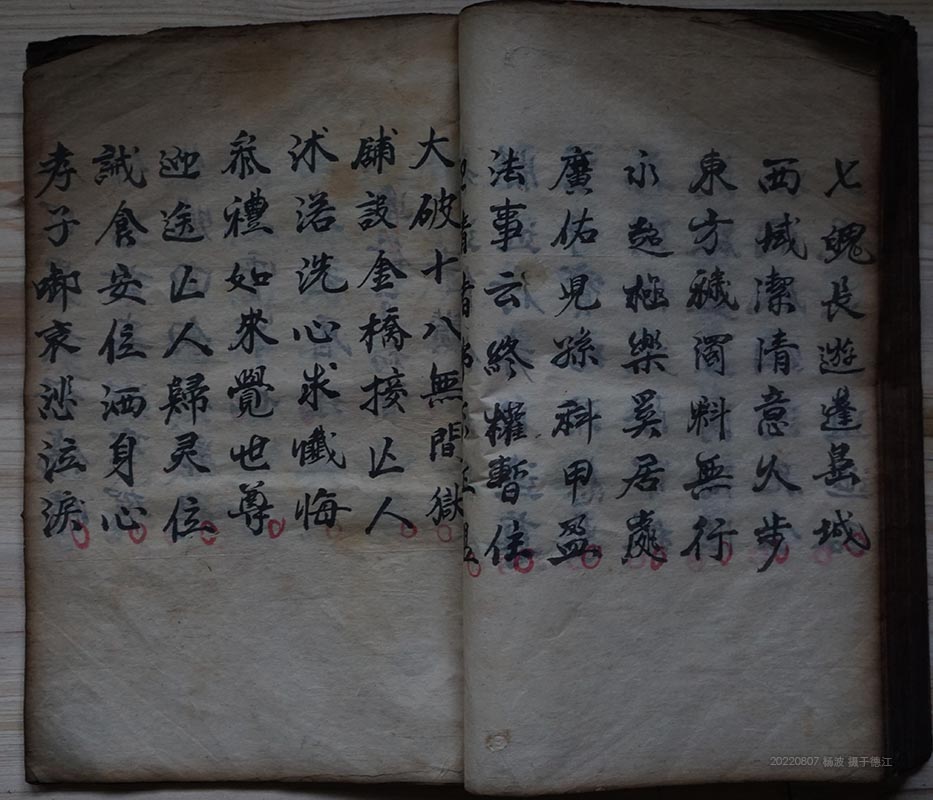 七魄長遊蓬島城
西域潔清意火步
東方穢濁料無行
永超極樂奚居處
廣佑児孫科甲盈
法事云終權暫住
大破十八無間獄
舖設金橋接亡人
沭浴洗心求懺悔
叅禮如來覺世尊
迎送亡人歸灵位
誠食安位洒身心
孝子啣哀悲泣淚
20220807 杨波 摄于德江